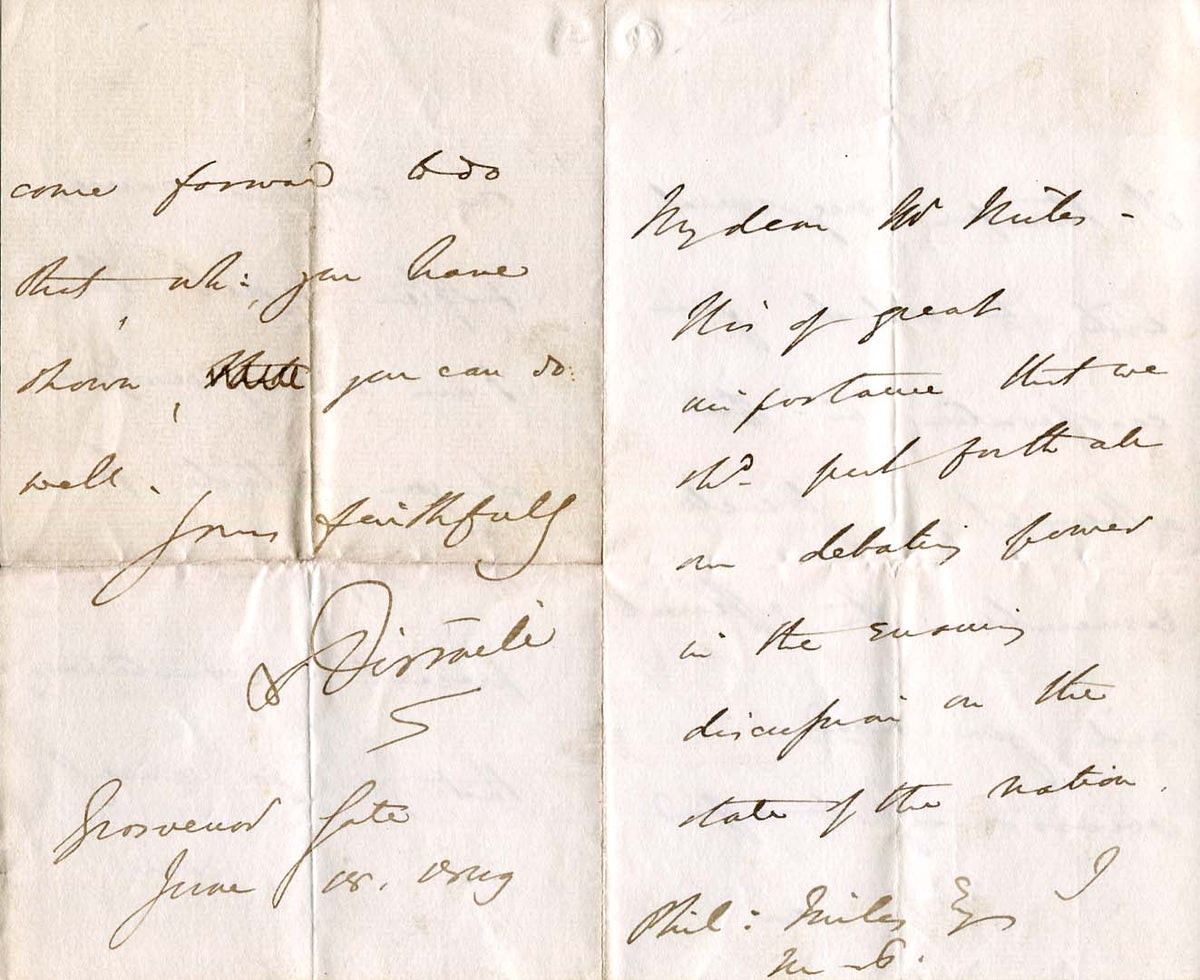 My dear Mr Miles -
It is of great
importance that we
shd. put forth all
our debating power
in the ensuing
discussion on the
state of the nation.
I
Phil: Miles Esq
M.P.
come forward to do
that, wh:, you have
shown, you can do:
well.
Yours faithfully
B Disraeli
Grosvenor Gate
June 18. 1849